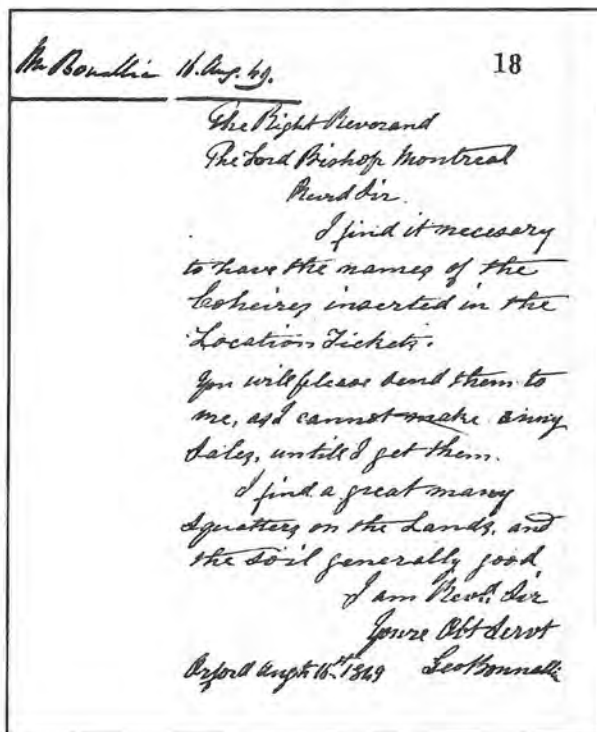 Mr Bonallie 16 Aug. 49.
18
The Right Reverand
The Lord Bishop Montreal
Revrd Sir.
I find it necesary
to have the names of the
Coheires inserted in the
Location Tickets.
You will please send them to
me, as I cannot make anny
Sales, untill I get them.
I find a great many
Squatters on the Lands, and
the soil generally good
I am Revd. Sir
Youre Obt Servt
Orford Augt 16th 1849 Geo Bonnallie